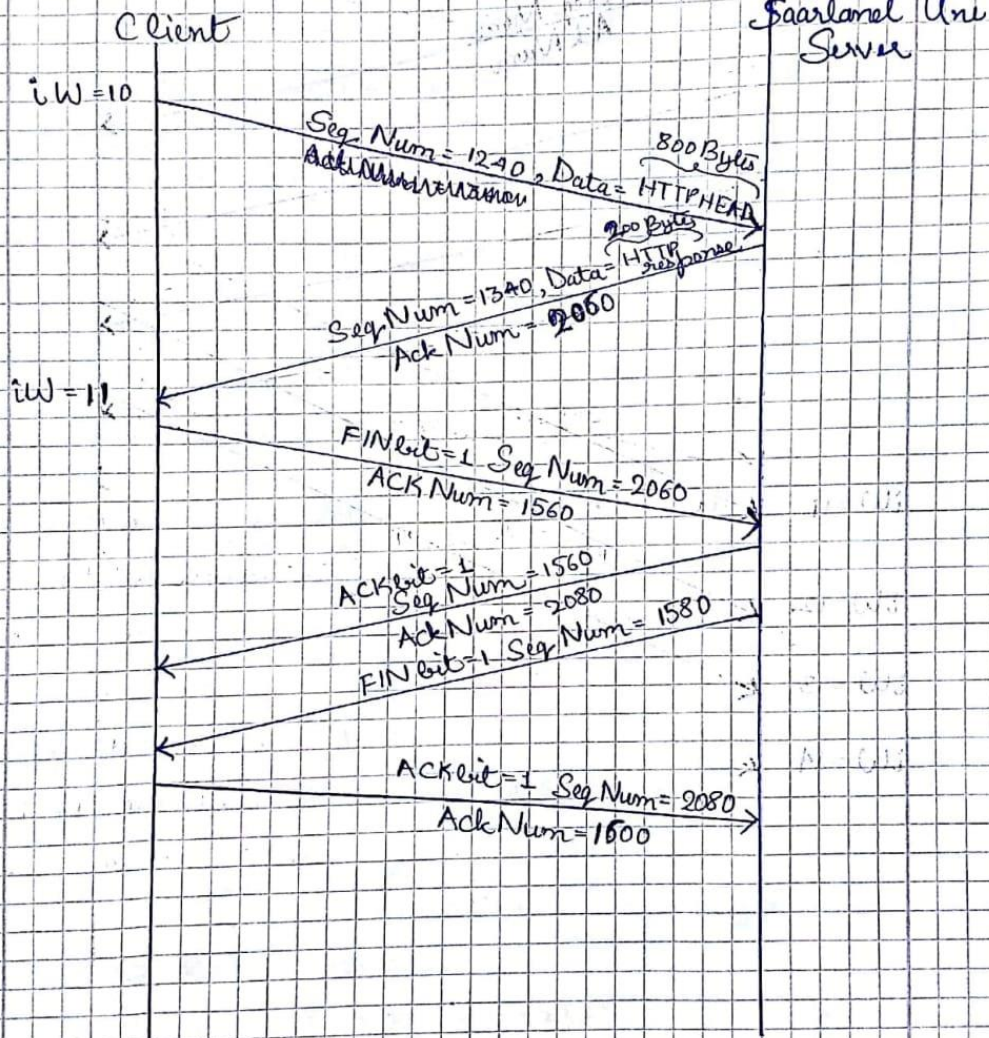 Client
Saarland Uni
Server
iW=10
Seq Num = 1240, Data = HTTPHEAD
800 Bytes
200 Bytes
Seq Num = 1340, Data = HTTP response
Ack Num = 2060
iW = 11
FIN bit=1 Seq Num = 2060
ACK Num = 1560
ACK bit = 1
Seq Num = 1560
Ack Num = 2080
FIN bit=1 Seq Num = 1580
ACK bit=1 Seq Num = 2080
Ack Num = 1600